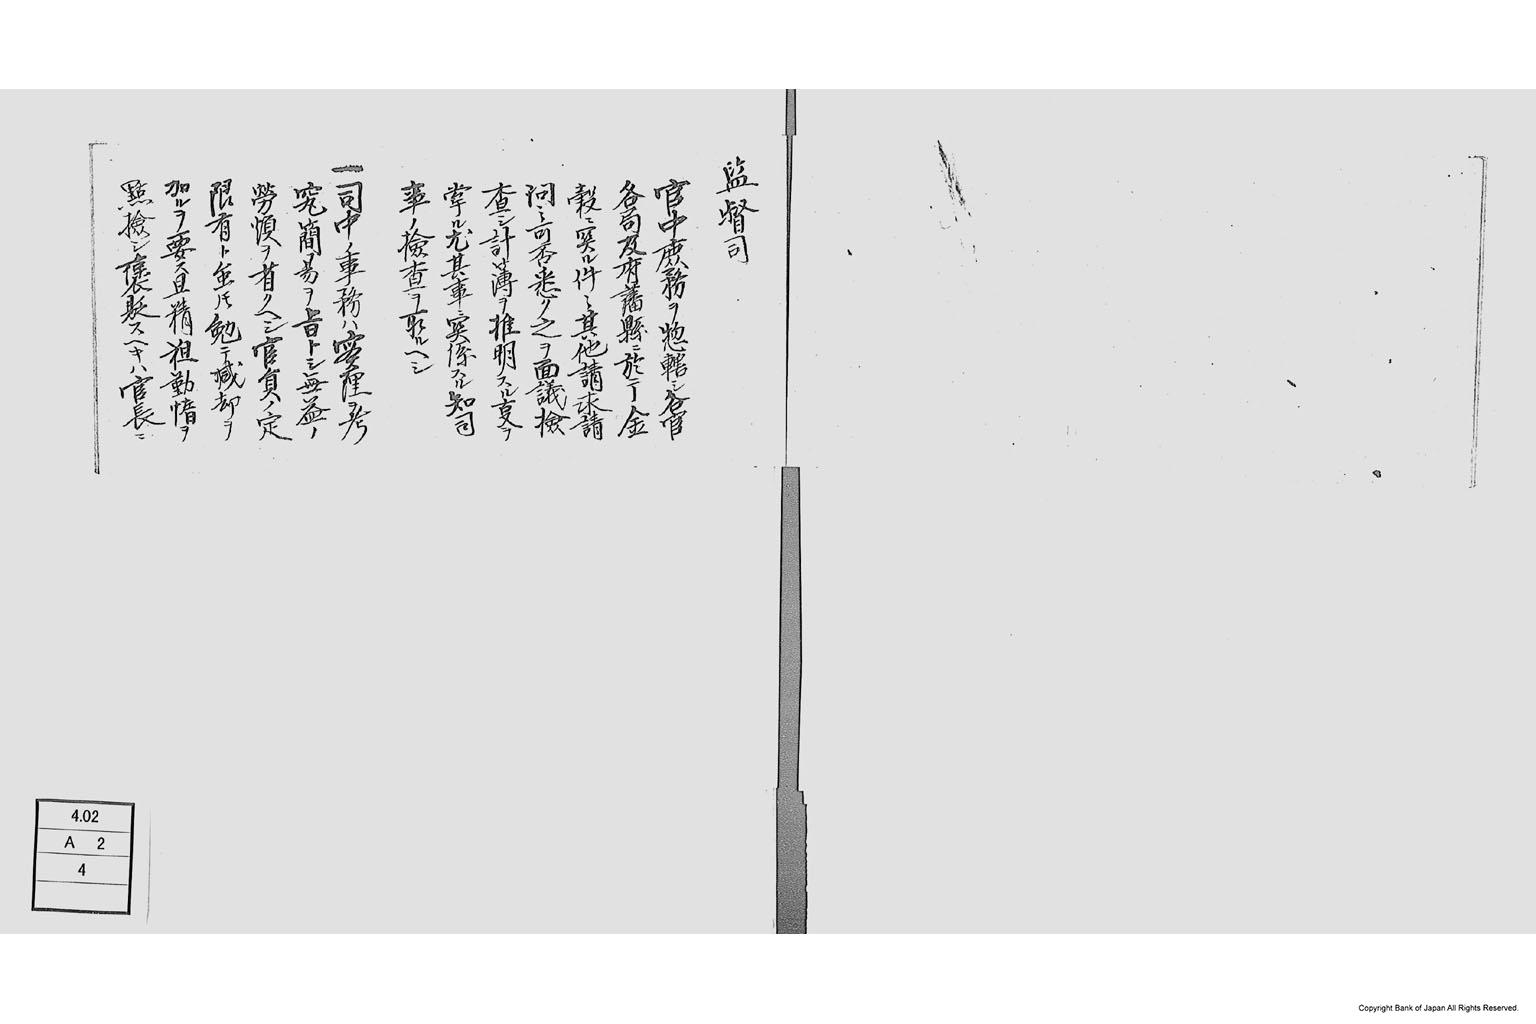 監督司
官中庶務ヲ惣轄シ各官
各司及府藩縣ニ於テ金
穀ニ関ル件々其他請求請
問ミ可否悉ク之ヲ面議檢
査シ計簿ヲ推明スル㕝ヲ
掌ル尤其事ニ関係スル知司
事ノ檢査ヲ取ルヘシ
一司中ノ事務ハ密理ヲ考
究簡易ヲ旨トシ無益ノ
勞煩ヲ省クヘシ官員ノ定
限有ト𫝆モ勉テ減却ヲ
加ルヲ要ス且精粗勤惰ヲ
點撿シ褒貶スヘキハ官長ニ
4.02
A 2
4
Copyright Bank of Japan All Rights Reserved.